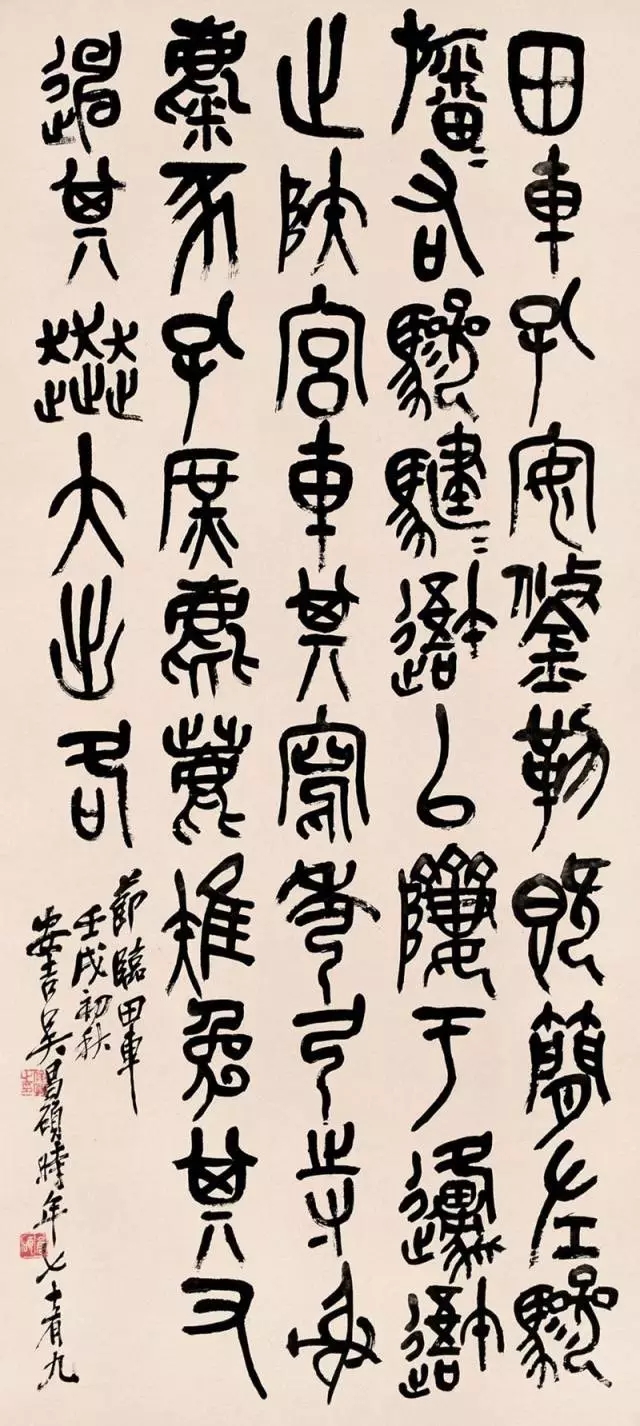 田車孔安鋚勒既簡左驂
旛=右驂騝=䢩以隮于邍䢩
止陕宮車其寫秀弓寺射
麋豕孔庶麀鹿雉兔其又
其奔大出各
節臨田車
壬戌初秋
安吉吳昌碩時年七十有九